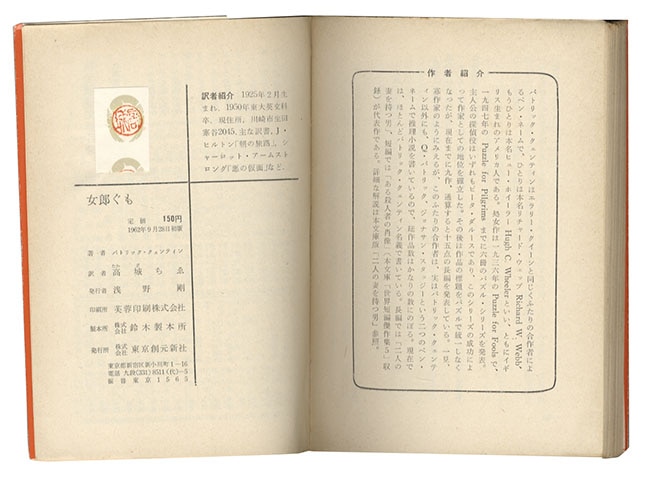 作者紹介
パトリック・クェンティンはエラリー・クイーンと同じくふたりの合作者によ
るペン・ネームで、ひとりは本名リチャード・ウェッブ Richard W. Webb,
もうひとりは本名ヒュー・ホイーラー Hugh C. Wheeler といい、ともにイギ
リス生まれのアメリカ人である。処女作は一九三六年の Puzzle for Fools で、
一九四七年の Puzzle for Pilgrims までに六冊のパズル・シリーズを発表。
主人公の探偵役はいずれもピーター・ダルースであり、このシリーズの成功によ
って作家としての地位を確立した。その後は作品の標題をパズルで統一しなく
なったが、現在までに九作、通算すると十五点の長編を発表している。一見、
寡作家のようにみえるが、このふたりの合作者は、実はパトリック・クェンテ
ィン以外にも、Q・パトリック、ジョナサン・スタッジーという二つのペン・
ネームで推理小説を書いているので、総作品数はかなりの数にのぼる。現在で
は、ほとんどパトリック・クェンティン名義で書いている。長編では「二人の
妻を持つ男」、短編では「ある殺人者の肖像」(本文庫「世界短編傑作集5」収
録)が代表作である。詳細な解説は本文庫版「二人の妻を持つ男」参照。
訳者紹介 1925年2月生
まれ、1950年東大英文科
卒、現住所、川崎市生田
寒谷2045、主な訳書、J・
ヒルトン「朝の旅路」、シ
ャーロット・アームスト
ロング「悪の仮面」など。
女郎ぐも
定価 150円
1962年9月28日初版
著者 パトリック・クェンティン
訳者 高城ちゑ
発行者 浅野剛
印刷所 芙蓉印刷株式会社
製本所 株式会社 鈴木製本所
発行所 株式会社 東京創元新社
東京都新宿区新小川町1-16
電話 九段(331)8511(代)-5
振替 東京 1565